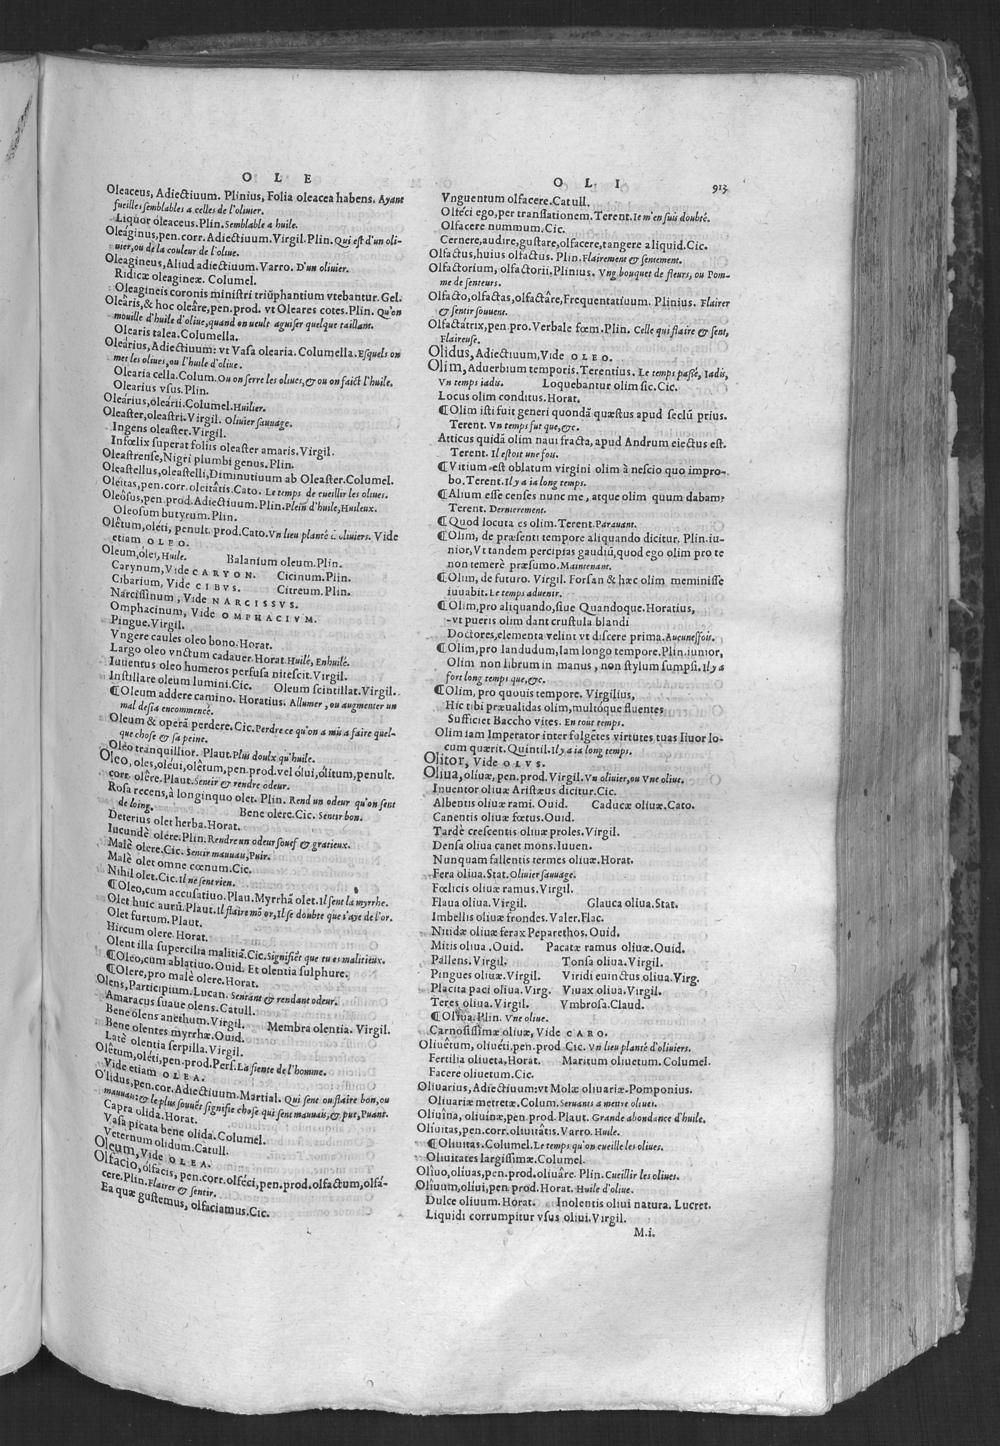 O L E
Oleaceus, Adiectiuum. Plinius, Folia oleacea habens. Ayant
fueilles semblables a celles de l'oliuier.
Liquor oleaceus. Plin. Semblable a huile.
Oleaginus, pen. corr. Adiectiuum. Virgil. Plin. Qui est d'un oli-
uier, ou de la couleur de l'oliue.
Oleagineus, Aliud adiectiuum. Varro. D'un oliuier.
Ridicæ oleagineæ. Columel.
Oleagineis coronis ministri triũphantium vtebantur. Gel.
Oleâris, & hoc oleâre, pen. prod. vt Oleares cotes. Plin. Qu'on
mouille d'huile d'oliue, quand on ueult aguiser quelque taillant.
Olearis talea. Columella.
Olearius, Adiectiuum: vt Vasa olearia. Columella. Esquels on
met les oliues, ou l'huile d'oliue.
Olearia cella. Colum. Ou on serre les oliues, & ou on faict l'huile.
Olearius vsus. Plin.
Olearius, olearii. Columel. Huilier.
Oleaster, oleastri. Virgil. Oliuier sauuage.
Ingens oleaster. Virgil.
Infœlix superat foliis oleaster amaris. Virgil.
Oleastrense, Nigri plumbi genus. Plin.
Oleastellus, oleastelli, Diminutiuum ab Oleaster. Columel.
Oleitas, pen. corr. oleitâtis. Cato. Le temps de cueillir les oliues.
Oleôsus, pen. prod. Adiectiuum. Plin. Plein d'huile, Huileux.
Oleosum butyrum. Plin.
Olêtum, olêti, penult. prod. Cato. Vn lieu planté d'oliuiers. Vide
etiam OLEO.
Oleum, olei, Huile. Balanium oleum. Plin.
Carynum, Vide CARYON. Cicinum. Plin.
Cibarium, Vide CIBVS. Citreum. Plin.
Narcissinum, Vide NARCISSVS.
Omphacinum, Vide OMPHACIVM.
Pingue. Virgil.
Vngere caules oleo bono. Horat.
Largo oleo vnctum cadauer. Horat. Huilé, Enhuilé.
Iuuentus oleo humeros perfusa nitescit. Virgil.
Instillare oleum lumini. Cic. Oleum scintillat. Virgil.
¶Oleum addere camino. Horatius. Allumer, ou augmenter un
mal desia encommencé.
Oleum & operã perdere. Cic. Perdre ce qu'on a mis a faire quel-
que chose & sa peine.
Oleo tranquillior. Plaut. Plus doulx qu'huile.
Oleo, oles, oleui, olêtum, pen. prod. vel ólui, ólitum, penult.
corr. olêre. Plaut. Sentir & rendre odeur.
Rosa recens, à longinquo olet. Plin. Rend un odeur qu'on sent
de loing. Bene olere. Cic. Sentir bon.
Deterius olet herba. Horat.
Iucundè olere. Plin. Rendre un odeur souef & gratieux.
Malè olere. Cic. Sentir mauuau, Puir.
Malè olet omne cœnum. Cic.
Nihil olet. Cic. Il ne sent rien.
¶Oleo, cum accusatiuo. Plau. Myrrhã olet. Il sent la myrrhe.
Olet huic aurũ. Plaut. Il flaire mõ or, Il se doubte que i'aye de l'or.
Olet furtum. Plaut.
Hircum olere. Horat.
Olent illa supercilia malitiã. Cic. Signifiẽt que tu es malitieux.
¶Oleo, cum ablatiuo. Ouid. Et olentia sulphure.
¶Olere, pro malè olere. Horat.
Olens, Participium. Lucan. Sentant & rendant odeur.
Amaracus suaue olens. Catull.
Bene olens anethum. Virgil. Membra olentia. Virgil.
Bene olentes myrrhæ. Ouid.
Latè olentia serpilla. Virgil.
Olêtum, olêti, pen. prod. Pers. La fiente de l'homme.
Vide etiam OLEA.
Olidus, pen. cor. Adiectiuum. Martial. Qui sent ou flaire bon, ou
mauuau: & le plus souuẽt signifie chose qui sent mauuais, & put, Puant.
Capra olida. Horat.
Vasa picata bene olida. Columel.
Veternum olidum. Catull.
Oleum, Vide OLEA.
Olfacio, olfacis, pen. corr. olféci, pen. prod. olfactum, olfá-
cere. Plin. Flairer & sentir.
Ea quæ gustemus, olfaciamus. Cic.
O L I 913
Vnguentum olfacere. Catull.
Olfeci ego, per translationem. Terent. Ie m'en suis doubté.
Olfacere nummum. Cic.
Cernere, audire, gustare, olfacere, tangere aliquid. Cic.
Olfactus, huius olfactus. Plin. Flairement & sentement.
Olfactorium, olfactorii. Plinius. Vng bouquet de fleurs, ou Pom-
me de senteurs.
Olfacto, olfactas, olfactâre, Frequentatiuum. Plinius. Flairer
& sentir souuent.
Olfactâtrix, pen. pro. Verbale fœm. Plin. Celle qui flaire & sent,
Flaireuse.
Olidus, Adiectiuum, Vide OLEO.
Olim, Aduerbium temporis. Terentius. Le temps passé, Iadis,
Vn temps iadis. Loquebantur olim sic. Cic.
Locus olim conditus. Horat.
¶Olim isti fuit generi quondã quæstus apud seclũ prius.
Terent. Vn temps fut que, &c.
Atticus quidã olim naui fracta, apud Andrum eiectus est.
Terent. Il estoit une fois.
¶Vitium est oblatum virgini olim à nescio quo impro-
bo. Terent. Il y a ia long temps.
¶Alium esse censes nunc me, atque olim quum dabam?
Terent. Dernierement.
¶Quod locuta es olim. Terent. Parauant.
¶Olim, de præsenti tempore aliquando dicitur. Plin. iu-
nior, Vt tandem percipias gaudiũ, quod ego olim pro te
non temerè præsumo. Maintenant.
¶Olim, de futuro. Virgil. Forsan & hæc olim meminisse
iuuabit. Le temps aduenir.
¶Olim, pro aliquando, siue Quandoque. Horatius,
-vt pueris olim dant crustula blandi
Doctores, elementa velint vt discere prima. Aucunesfois.
¶Olim, pro Iandudum, Iam longo tempore. Plin. iunior,
Olim non librum in manus, non stylum sumpsi. Il y a
fort long temps que, &c.
¶Olim, pro quouis tempore. Virgilius,
Hic tibi præualidas olim, multóque fluentes
Sufficiet Baccho vites. En tout temps.
Olim iam Imperator inter fulgẽtes virtutes tuas liuor lo-
cum quærit. Quintil. Il y a ia long temps.
Olitor, Vide OLVS.
Oliua, oliuæ, pen. prod. Virgil. Vn oliuier, ou Vne oliue.
Inuentor oliuæ Aristæus dicitur. Cic.
Albentis oliuæ rami. Ouid. Caducæ oliuæ. Cato.
Canentis oliuæ fœtus. Ouid.
Tardè crescentis oliuæ proles. Virgil.
Densa oliua canet mons. Iuuen.
Nunquam fallentis termes oliuæ. Horat.
Fera oliua. Stat. Oliuier sauuage.
Fœlicis oliuæ ramus. Virgil.
Flaua oliua. Virgil. Glauca oliua. Stat.
Imbellis oliuæ frondes. Valer. Flac.
Nitidæ oliuæ ferax Peparethos. Ouid.
Mitis oliua. Ouid. Pacatæ ramus oliuæ. Ouid.
Pallens. Virgil. Tonsa oliua. Virgil.
Pingues oliuæ. Virgil. Viridi euinctus oliua. Virg.
Placita paci oliua. Virg. Viuax oliua. Virgil.
Teres oliua. Virgil. Vmbrosa. Claud.
¶Oliua. Plin. Vne oliue.
Carnosissimæ oliuæ, Vide CARO.
Oliuêtum, oliuéti, pen. prod Cic. Vn lieu planté d'oliuiers.
Fertilia oliueta, Horat. Maritum oliuetum. Columel.
Facere oliuetum. Cic.
Oliuarius, Adiectiuum: vt Molæ oliuariæ. Pomponius.
Oliuariæ metretæ. Colum. Seruants a mettre oliues.
Oliuîna, oliuinæ, pen. prod. Plaut. Grande abondance d'huile.
Oliuitas, pen. corr. oliuitâtis. Varro. Huile.
¶Oliuitas. Columel. Le temps qu'on cueille les oliues.
Oliuitates largissimæ. Columel.
Oliuo, oliuas, pen. prod. oliuâre. Plin. Cueillir les oliues.
Oliuum, oliui, pen prod. Horat. Huile d'oliue.
Dulce oliuum. Horat. Inolentis oliui natura. Lucret.
Liquidi corrumpitur vsus oliui. Virgil.
M.i.